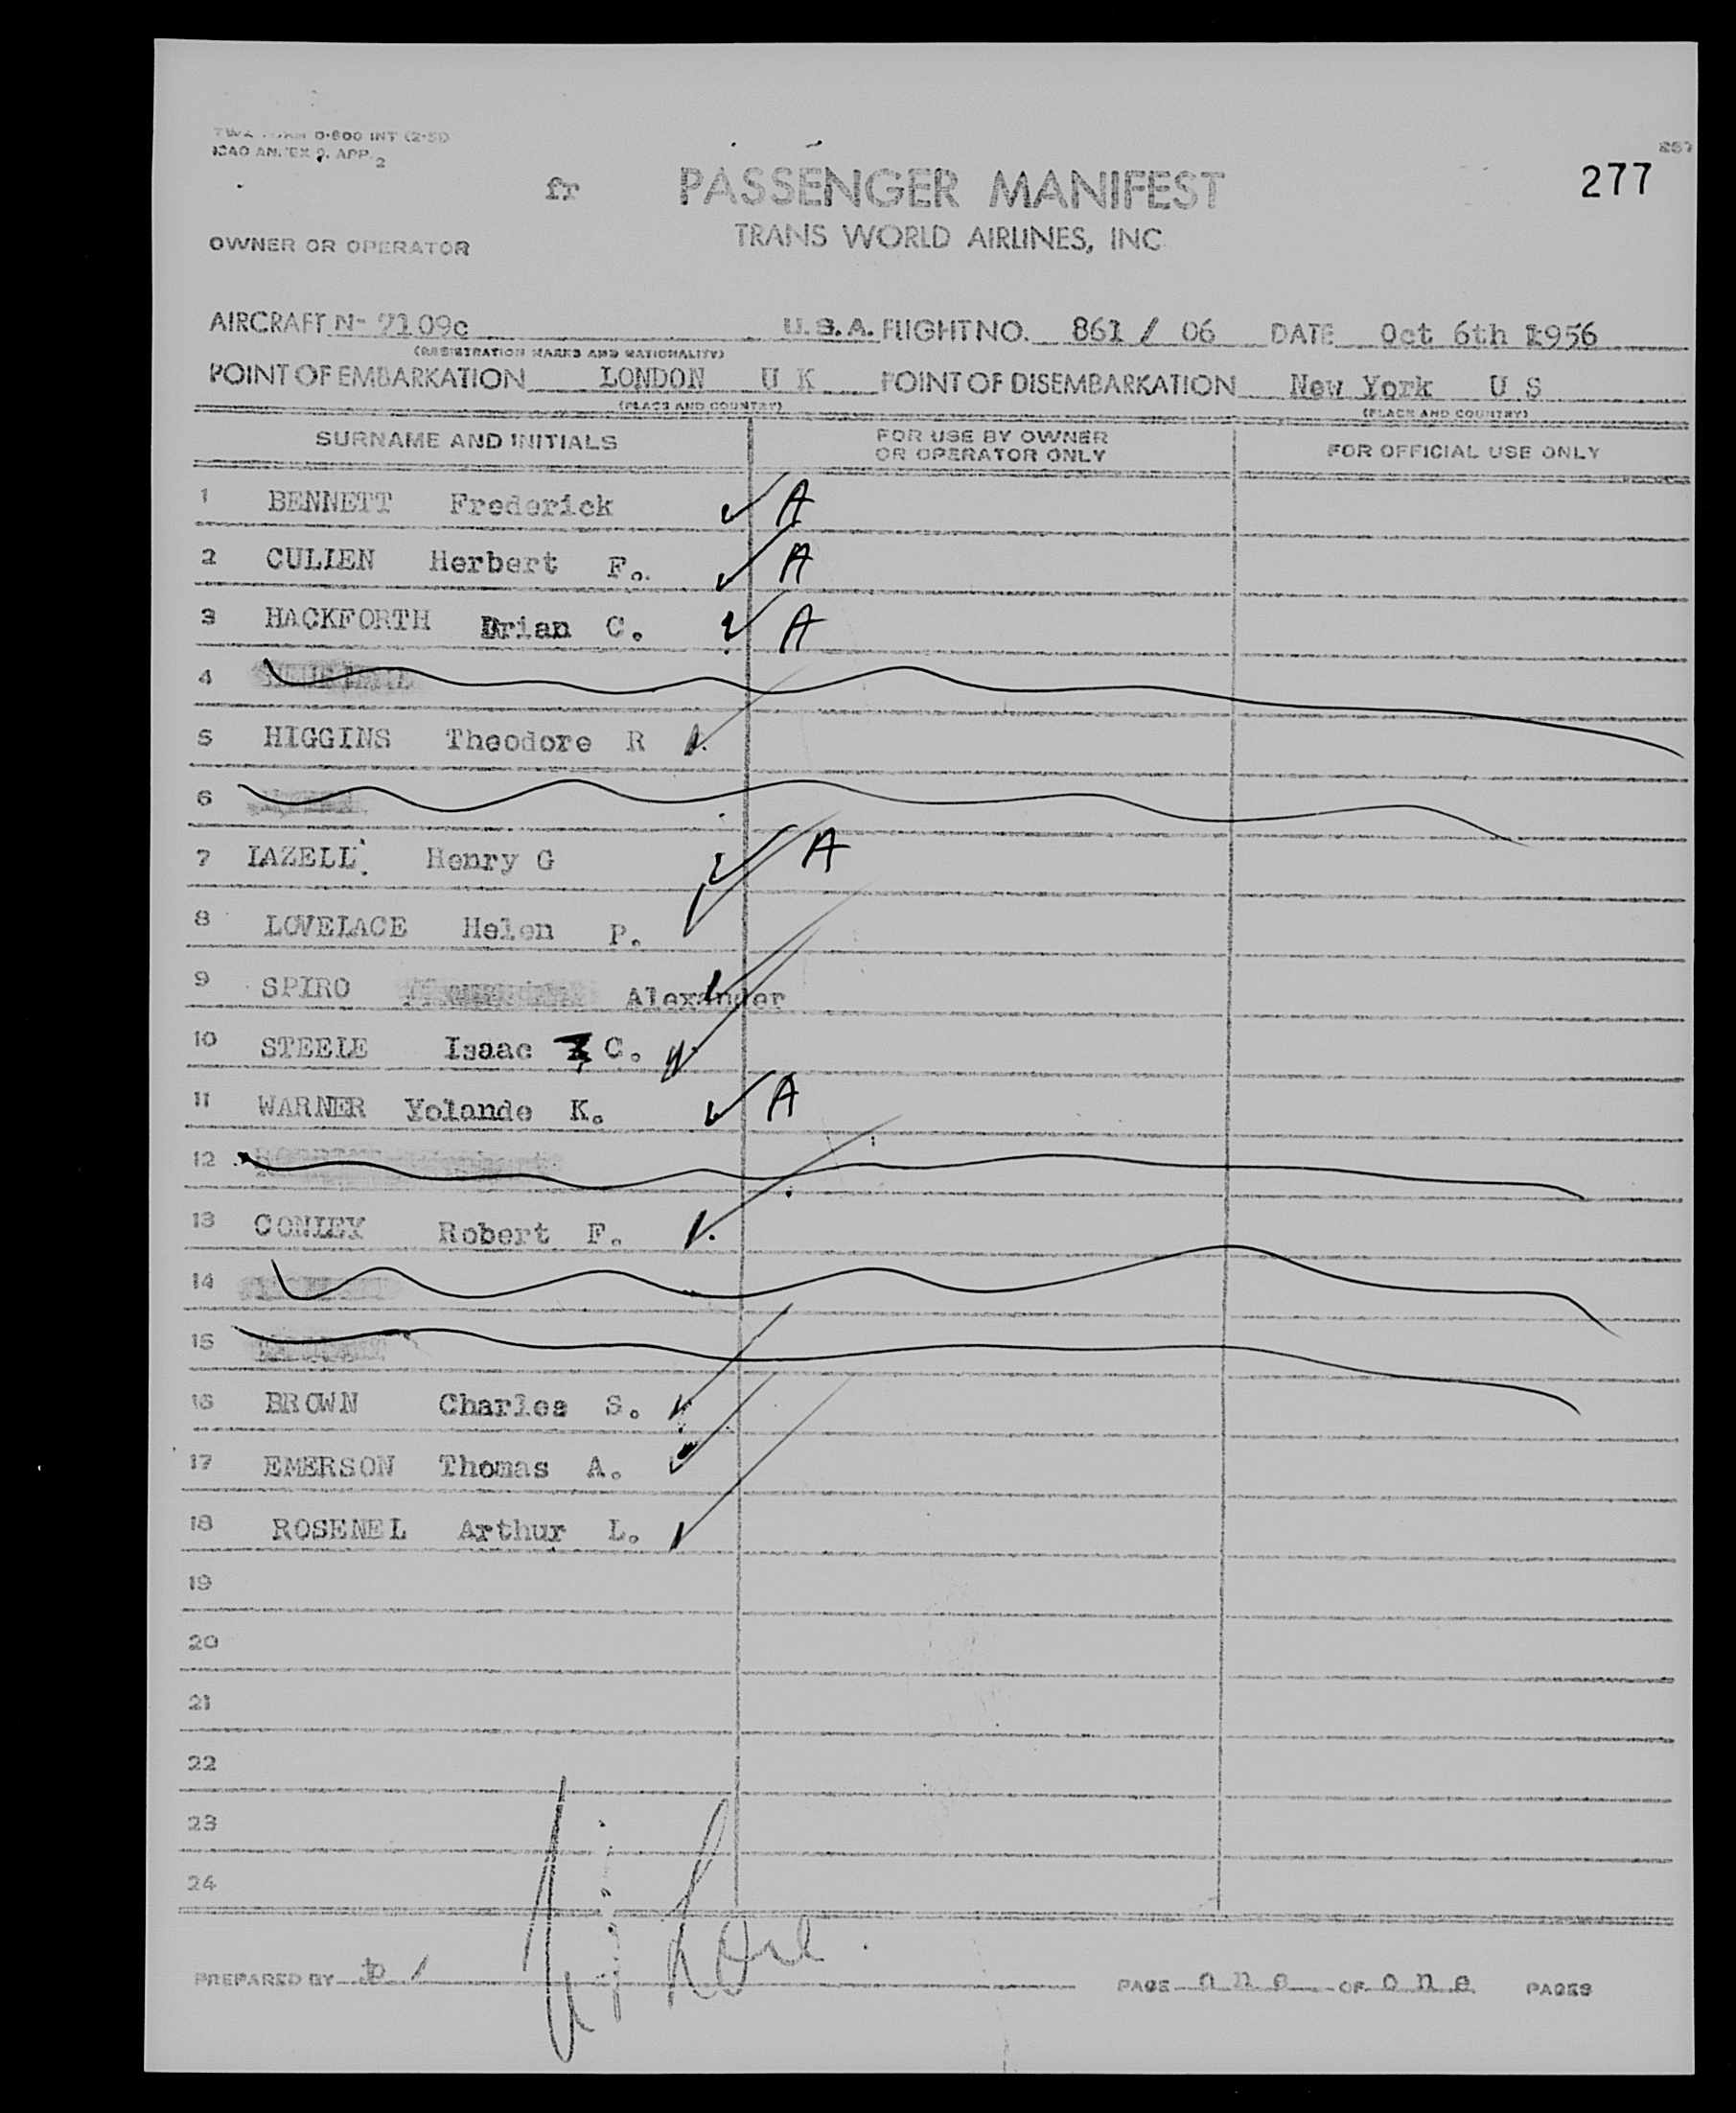 0-800 INT (2-51)
ICAO ANNEX 9. APP. 2
fr PASSENGER MANIFEST 277
TRANS WORLD AIRLINES, INC
OWNER OR OPERATOR
AIRCRAFT N- 7109c U.S.A. FLIGHT NO. 861 / 06 DATE Oct 6th 1956
(REGISTRATION MARKS AND NATIONALITY)
POINT OF EMBARKATION LONDON U K POINT OF DISEMBARKATION New York U S
(PLACE AND COUNTRY) (PLACE AND COUNTRY)
SURNAME AND INITIALS FOR USE BY OWNER OR OPERATOR ONLY FOR OFFICIAL USE ONLY
1 BENNETT Frederick A
2 CULLEN Herbert F. A
3 HACKFORTH Brian C. A
4
5 HIGGINS Theodore R
6
7 LAZELL Henry G A
8 LOVELACE Helen P.
9 SPIRO Alexander
10 STEELE Isaac C.
11 WARNER Yolande K. A
12
13 CONLEY Robert F.
14
15
16 BROWN Charles S.
17 EMERSON Thomas A.
18 ROSENEL Arthur L.
19
20
21
22
23
24
PREPARED BY PAGE one OF one PAGES